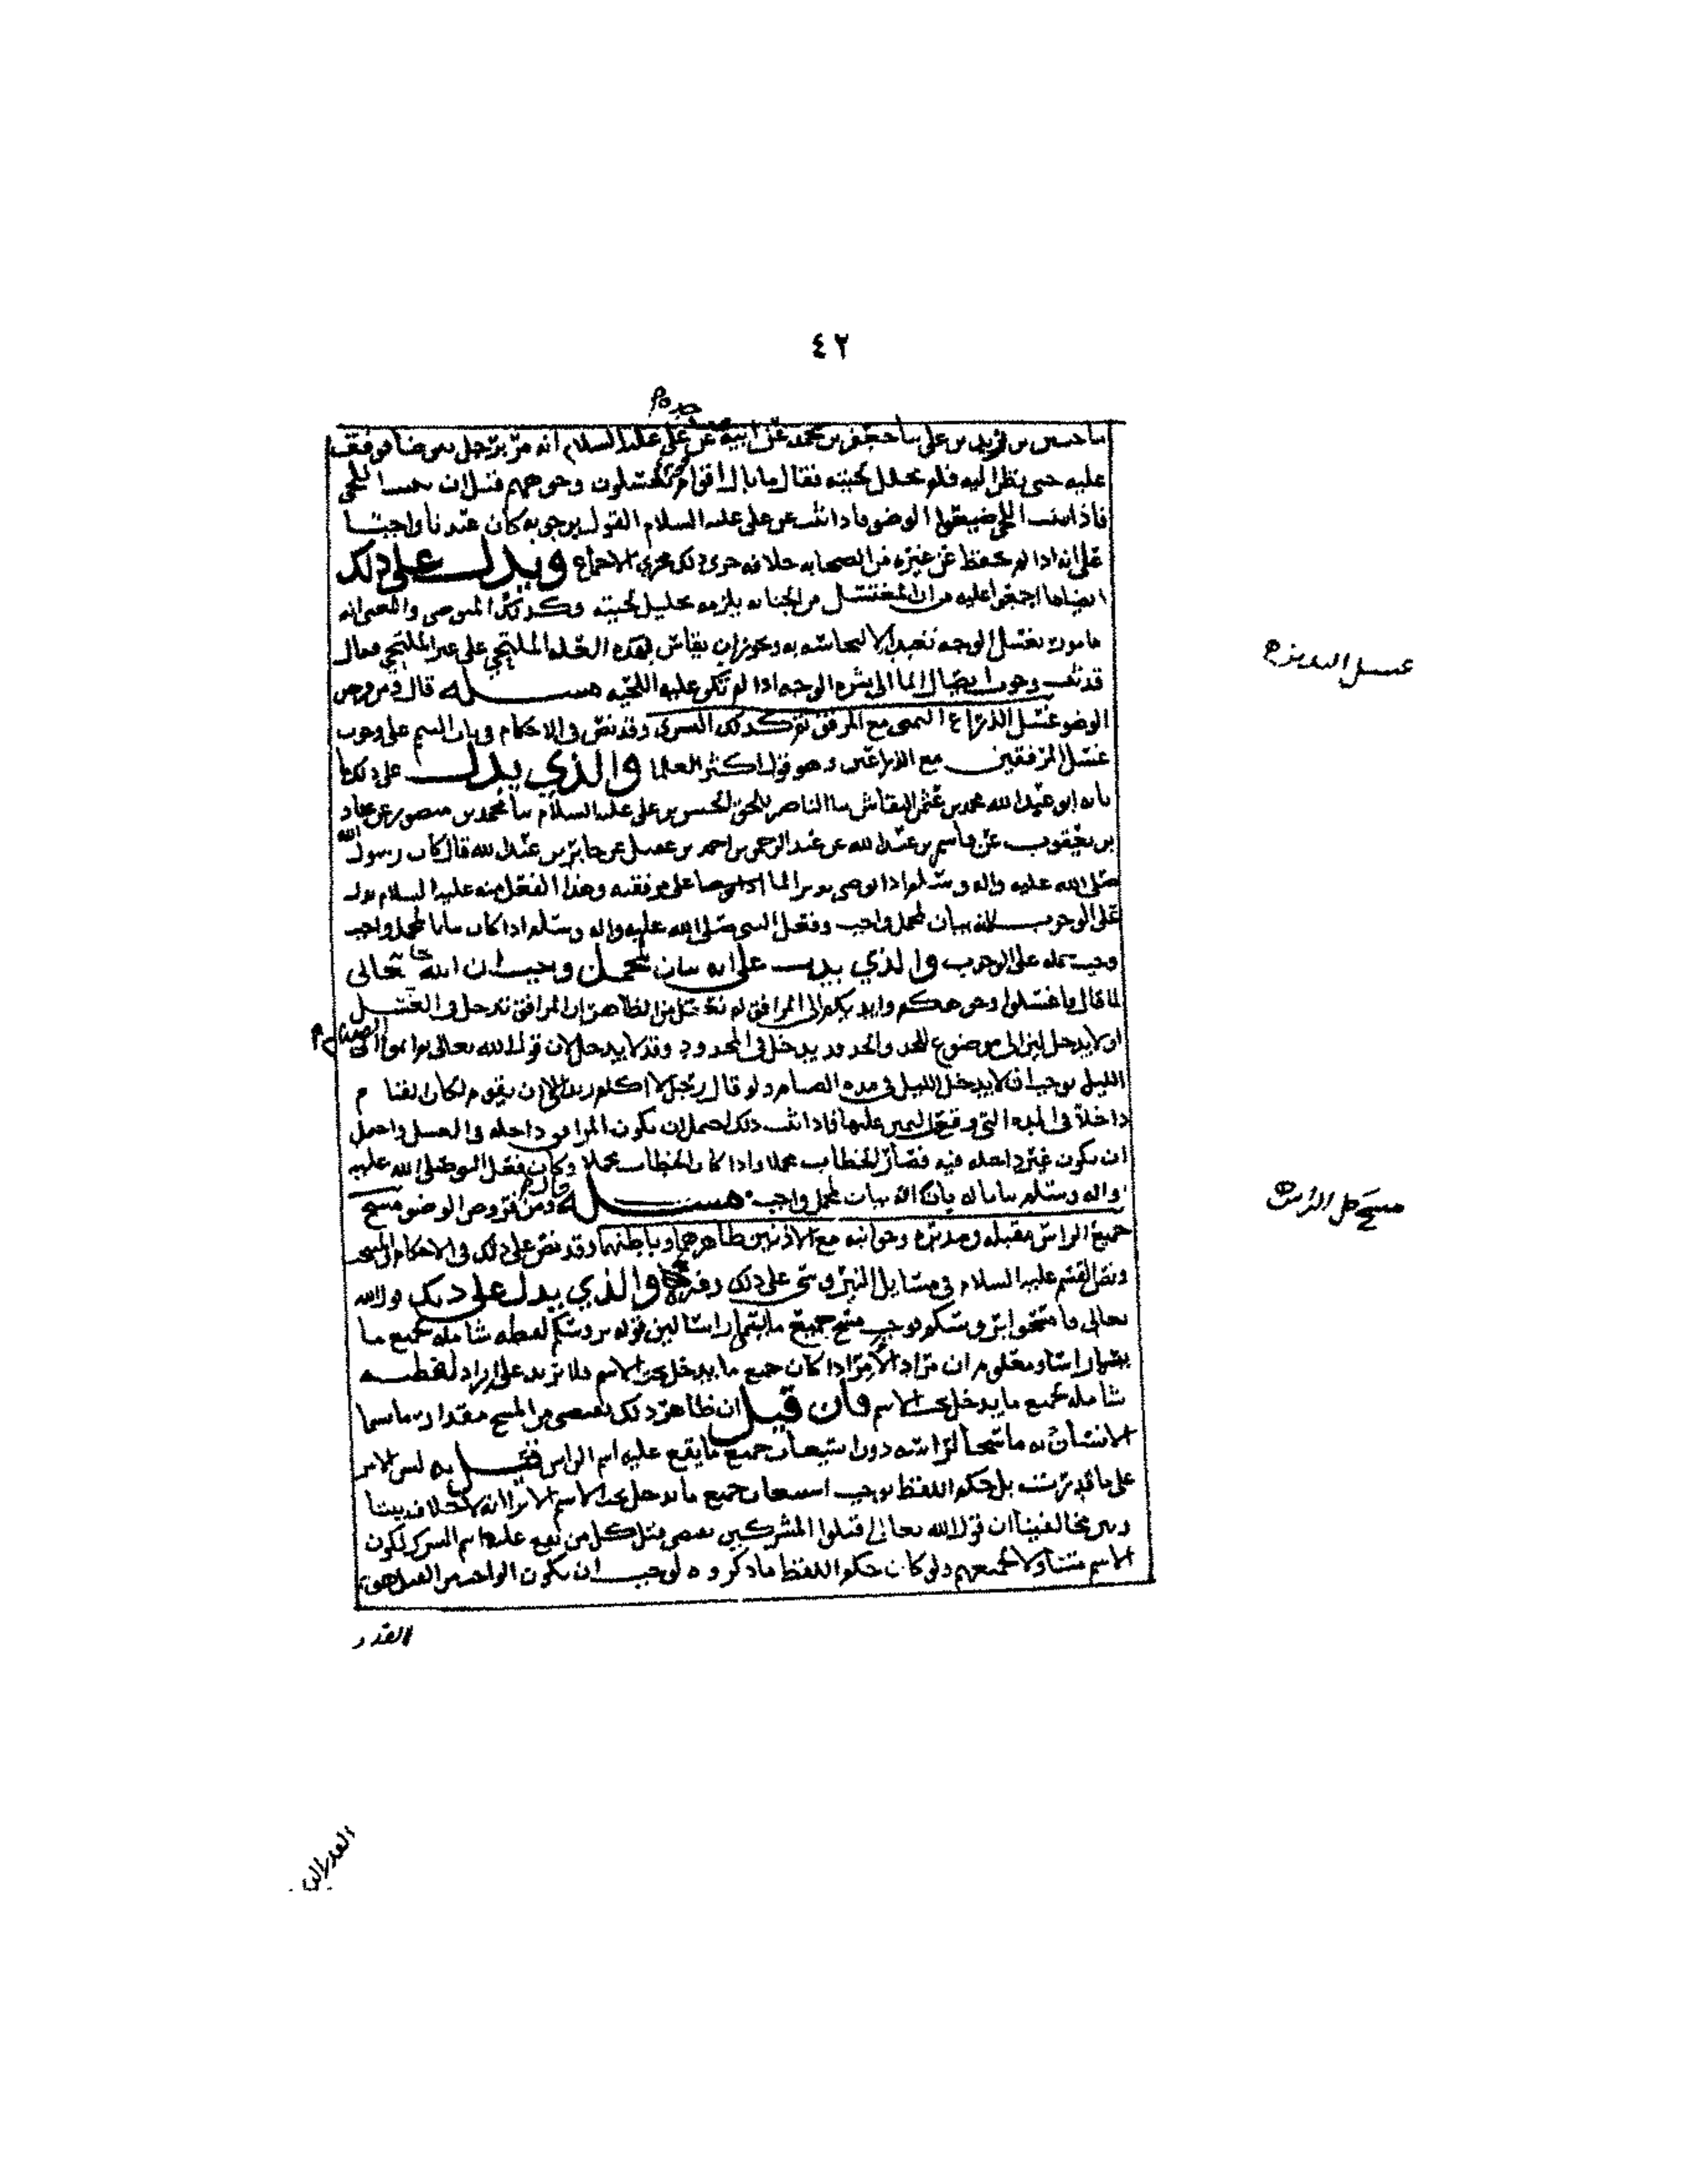 ٤٢
حسين بن زيد بن علي جعفر بن محمد عن ابيه عن علي عليه السلام انه مر برجل فوقف
عليه حتى ينظر اليه فلم يخلل لحيته فقال ما بال اقوام يغسلون وجوههم قبل ان اللحى
فاذا اللحى ضيعوا الوضو فاذا ثبت عن علي عليه السلام القول بوجوبه كان عندنا واجبا
على انه اذا لم يحفظ عن غيره من الصحابه خلافه جرى ذلك مجرى الاجماع ويدل على ذلك
ايضا ما اجمعوا عليه من ان المغتسل من الجنابه يلزمه تخليل لحيته وكذلك المتوضي والمعنى انه
مامور بغسل الوجه به ويجوز ان يقاس بهذه العله الملتحي على غير الملتحي
قد ثبت وجوب ايصال الما الى بشره الوجه اذا لم تكن عليه اللحيه مسئله قال ومن فروض
الوضو غسل الذراع اليمنى مع المرفق ثم كذلك اليسرى وقد نص في الاحكام في باب التيمم على وجوب
غسل المرفقين مع الذراعين وهو قول اكثر العلما والذي يدل على ذلك ما
ابو عبد الله محمد بن عثمن النقاش الناصر للحق الحسن بن علي عليه السلام محمد بن منصور عن عباد
بن يعقوب عن قاسم بن عبد الله عن جابر بن عبد الله قال كان رسول الله
صلى الله عليه واله وسلم اذا الما على مرفقيه وهذا الفعل منه عليه السلام يدل
على الوجوب لانه بيان لمجمل واجب وفعل النبي صلى الله عليه واله وسلم اذا كان بيانا لمجمل واجب
وجب حمله على الوجوب والذي يدل على انه بيان لمجمل واجب ان الله تعالى
لما قال فاغسلوا وجوهكم وايديكم الى المرافق لم من الظاهر ان المرافق تدخل في الغسل
او لا يدخل لان الى موضوع للحد والحد قد يدخل في المحدود وقد لا يدخل لان قول الله تعالى ثم اتموا الصيام الى
الليل يوجب ان لا يدخل الليل في مده الصيام ولو قال رجل لا اكلم زيدا الى ان يقوم لكان
داخلا في المده التي وقع اليمين عليها فاذا ثبت ذلك احتمل ان يكون المرافق داخله في الغسل واحتمل
ان يكون غير داخله فيه فصار الخطاب مجملا واذا كان الخطاب مجملا وكان فعل النبي صلى الله عليه
واله وسلم بيانا له بان انه بيان لمجمل واجب مسئله قال ومن فروض الوضو مسح
جميع الراس مقبله ومدبره وجوانبه مع الاذنين ظاهرهما وباطنهما وقد نص على ذلك في الاحكام
ونص القسم عليه السلام في مسايل النيروسي على ذلك والذي يدل على ذلك قول الله
تعالى وامسحوا برؤسكم يوجب مسح جميع ما يسمى راسا لان قوله برؤسكم لفظه شامله لجميع ما
يسمى راسا ومعلوم ان مراد الامر اذا كان جميع ما يدخل تحت الاسم فلا يزيد على ايراد لفظه
شامله لجميع ما يدخل تحت الاسم فان قيل ان ظاهر ذلك يقتضي من المسح مقدار ما يسمى
الانسان به ماسحا لراسه دون استيعاب جميع ما يقع عليه اسم الراس قيل له ليس الامر
على ما قدرته بل حكم اللفظ يوجب استيعاب جميع ما يدخل تحت الاسم الا ترى انه لا خلاف بيننا
وبين مخالفينا ان قول الله تعالى اقتلوا المشركين يقتضي قتل كل من يقع عليه اسم الشرك لكون
الاسم متناولا لجميعهم ولو كان حكم اللفظ ما ذكروه لوجب ان يكون الواحد من القتل هو
القدر
غسل اليدين
مسح كل الراس